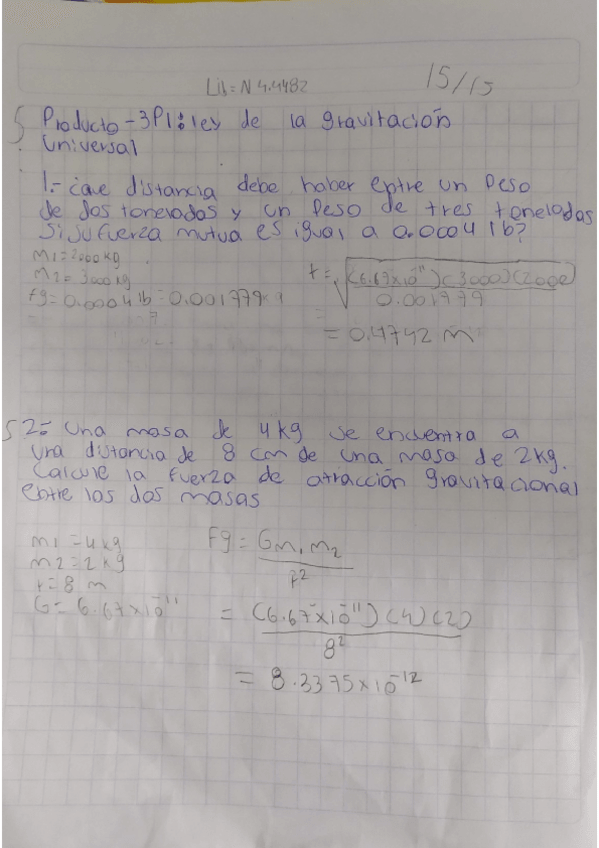 Lib = N 4.4482
15/15
Producto - 3P1: ley de la gravitación
Universal
1.- ¿que distancia debe haber entre un peso
de dos toneladas y un peso de tres toneladas
si su fuerza mutua es igual a 0.0004 lb?
m1 = 2000 kg
m2 = 3000 kg
Fg = 0.0004 lb = 0.001779
r = √(6.67x10⁻¹¹)(3000)(2000)
0.001779
=
= 0.4742 m
2.- Una masa de 4 kg se encuentra a
una distancia de 8 cm de una masa de 2kg.
Calcule la fuerza de atracción gravitacional
entre las dos masas
m1 = 4 kg
m2 = 2 kg
r = 8 m
G = 6.67x10⁻¹¹
Fg = Gm₁m₂
r²
= (6.67x10⁻¹¹)(4)(2)
8²
= 8.3375x10⁻¹²